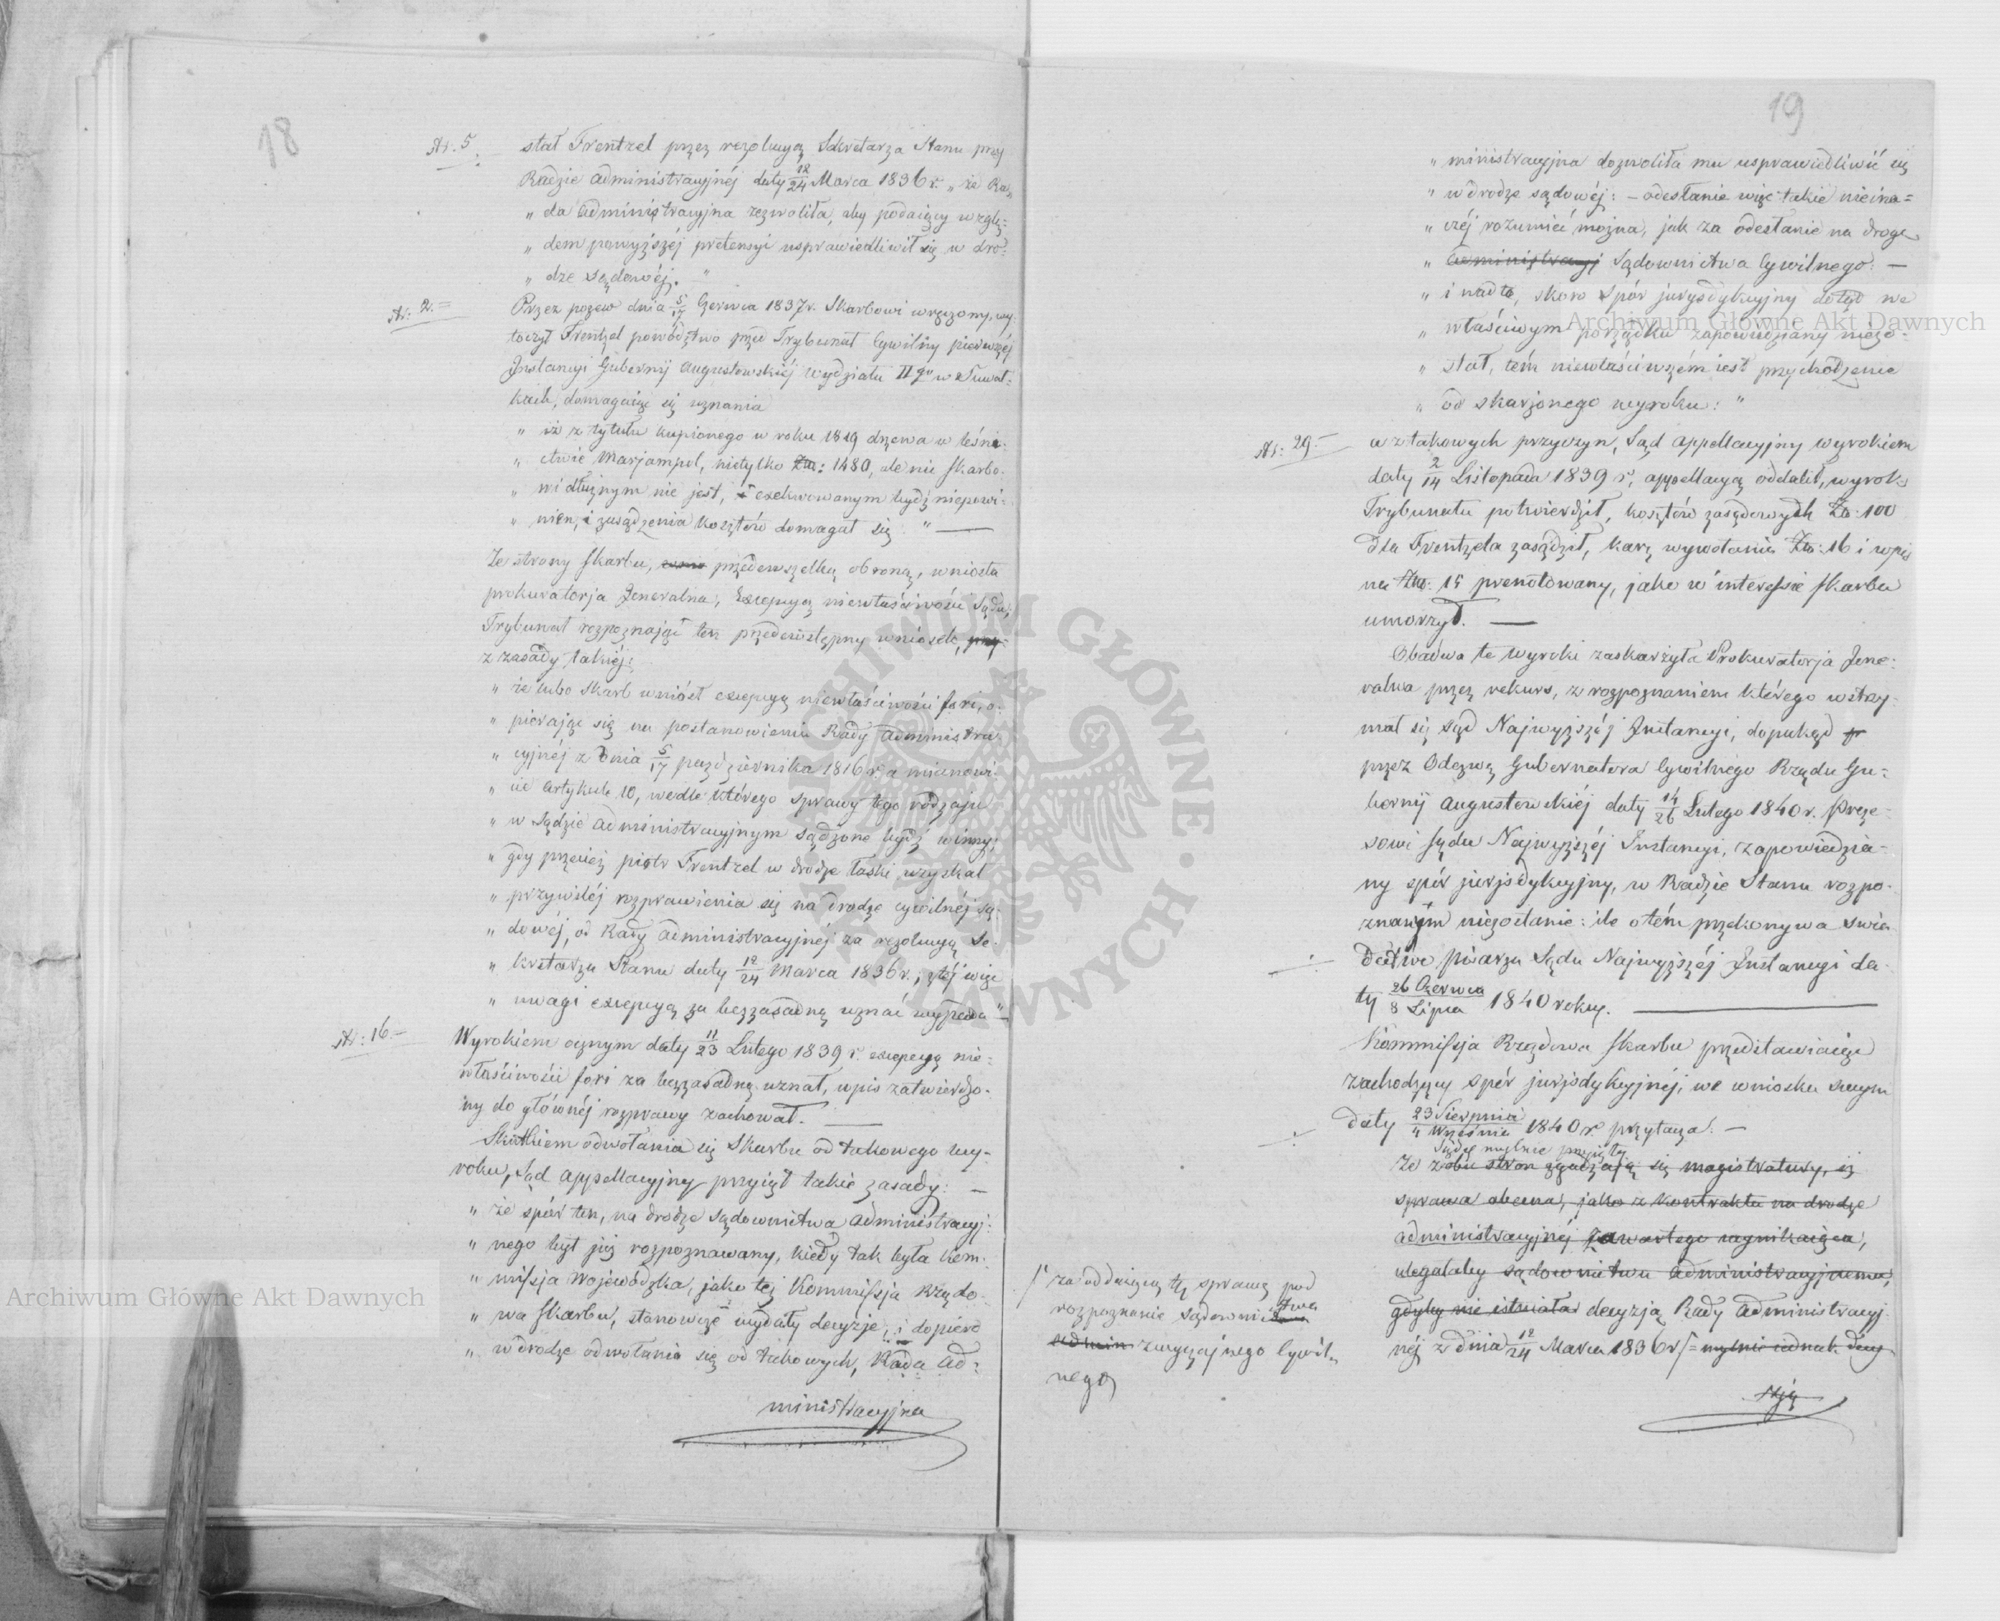 18
Nr. 5. stał Frentzel przez rezolucyą Sekretarza Stanu przy
Radzie administracyjnéj daty 12/24 Marca 1836 r. „że Ra„
„ da administracyjna zezwoliła, aby podaiący wzglę:
„ dem powyższéj pretensyi usprawiedliwił się w dro„
„ dze sądowéj. "
Nr. 2. Przez pozew dnia 5/17 Czerwca 1837 r. Skarbowi wręczony, wy„
toczył Frentzel powództwo przed Trybunał Cywilny pierwszéj
Instancyi Gubernij Augustowskiéj Wydziału II go w Suwał„
kach, domagaiąc się uznania
„ iż z tytułu kupionego w roku 1819 drzewa w leśni„
„ ctwie Marjampol, nietylko Złp: 1480, ale nic skarbo„
„ wi dłużnym nie jest, i exekwowanym bydź niepowi„
„ nien, i zasądzenia kosztów domagał się. " —
Ze strony skarbu, przedewszelką obroną, wniosła
prokuratorja Jeneralna, Excepcyą niewłaściwości Sądu,
Trybunał rozpoznaiąc ten przedewstępny wniosek, przy
z zasady takiéj:
„ że lubo Skarb wniósł excepcyą niewłaściwości fori, o„
„ pierając się na postanowieniu Rady administra„
„ cyjnéj z dnia 5/17 października 1816 r. a mianowi„
„ cie artykule 10, wedle którego sprawy tego rodzaju
„ w Sądzie administracyjnym sądzone bydź winny,
„ gdy przecież piotr Frentzel w drodze łaski uzyskał
„ przywiléj rozprawienia się na drodze cywilnéj są„
„ dowéj, od Rady administracyjnéj za rezolucyą Se„
„ kretarza Stanu daty 12/24 Marca 1836 r., z téj więc
„ uwagi excepcyą za bezzasadną uznać wypada "—
Nr: 16.— Wyrokiem ocznym daty 11/23 Lutego 1839 r. excepcyą nie„
właściwości fori za bezzasadną uznał, wpis zatwierdzo„
ny do głównéj rozprawy zachował. —
Skutkiem odwołania się Skarbu od takowego wy„
roku, Sąd appellacyjny przyiął takie zasady: —
„ że spór ten, na drodze sądownictwa administracyj:
„ nego był już rozpoznawany, kiedy tak była Kom„
„ missja Wojewódzka, jako też Kommissja Rządo„
„ wa skarbu, stanowcze wydały decyzje, i dopiero
„ w drodze odwołania się od takowych, Rada ad„
ministracyjna
19
„ ministracyjna dozwoliła mu usprawiedliwić się
„ w drodze sądowéj: — odesłanie więc takie nieina=
„ czéj rozumieć można, jak za odesłanie na drogę
„ administracyj Sądownictwa Cywilnego: —
„ i nadto, skoro spór jurysdykcyjny dotąd we
„ właściwym porządku zapowiedziany niezo„
„ stał, tém niewłaściwszém iest przychodzenie
„ od skarżonego wyroku: "
Nr: 29.— a z takowych przyczyn, Sąd appellacyjny wyrokiem
daty 2/14 Listopada 1839 r., appellacyą oddalił, wyrok
Trybunału potwierdził, kosztów zasądowych Złp: 100
dla Frentzla zasądził, karę wywołania Złp: 16 i wpis
na Złp: 15 prenotowany, jako w interessie skarbu
umorzył. —
Obadwa te wyroki zaskarżyła Prokuratorja Jene:
ralna przez rekurs, z rozpoznaniem którego wstrzy„
mał się sąd Najwyższéj Instancyi, dopukąd
przez Odezwę Gubernatora Cywilnego Rządu Gu:
bernij Augustowskiéj daty 14/26 Lutego 1840 r. Preze„
sowi sądu Najwyższéj Instancyi, zapowiedzia„
ny spór jurisdykcyjny, w Radzie Stanu rozpo„
znanym niezostanie: ile o tém przekonywa świa„
dectwo pisarza Sądu Najwyższéj Instancyi da„
ty 26 Czerwca/8 Lipca 1840 roku. —
Kommissja Rządowa skarbu przedstawiaiąc
zachodzący spór jurjsdykcyjnéj, we wniosku swym
daty 23 Sierpnia/4 Września 1840 r. przytacza: —
Sądy mylnie przyięły
że z obu stron zgadzają się magistratury, iż
sprawa obecna, jako z kontraktu na drodze
administracyjnéj zawartego wynikaiąca,
ulegałaby sądownictwu administracyjnemu,
gdyby nie istniała decyzją Rady administracyj„
néj z dnia 12/24 Marca 1836 r. /= mylnie iednak decy
zją
/ za oddaiącą tę sprawę pod
rozpoznanie sądownictwa
admin zwyczajnego Cywil„
nego,
Archiwum Główne Akt Dawnych
Archiwum Główne Akt Dawnych
ARCHIWUM GŁÓWNE · AKT DAWNYCH ·